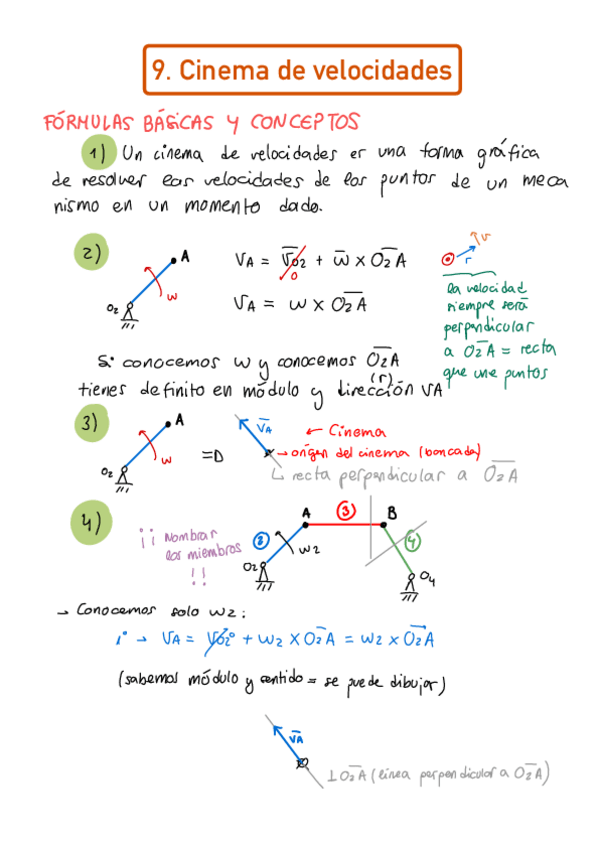 9. Cinema de velocidades
FÓRMULAS BÁSICAS Y CONCEPTOS
1) Un cinema de velocidades er una forma gráfica
de resolver las velocidades de los puntos de un meca
nismo en un momento dado.
2)
A
O2
w
VA = VO2 + w x O2A
0
VA = w x O2A
v
r
la velocidad
siempre será
perpendicular
a O2A = recta
que une puntos
Si conocemos w y conocemos O2A
(r)
tienes definito en módulo y dirección VA
3)
A
O2
w
=D
VA
← Cinema
→ orígen del cinema (bancada)
↳ recta perpendicular a O2A
4)
¡¡ Nombrar
los miembros
!!
2
A
3
B
4
w2
O2
O4
→ Conocemos solo w2:
1º → VA = VO2⁰ + w2 x O2A = w2 x O2A
(sabemos módulo y sentido = se puede dibujar)
VA
⊥O2A (línea perpendicular a O2A)